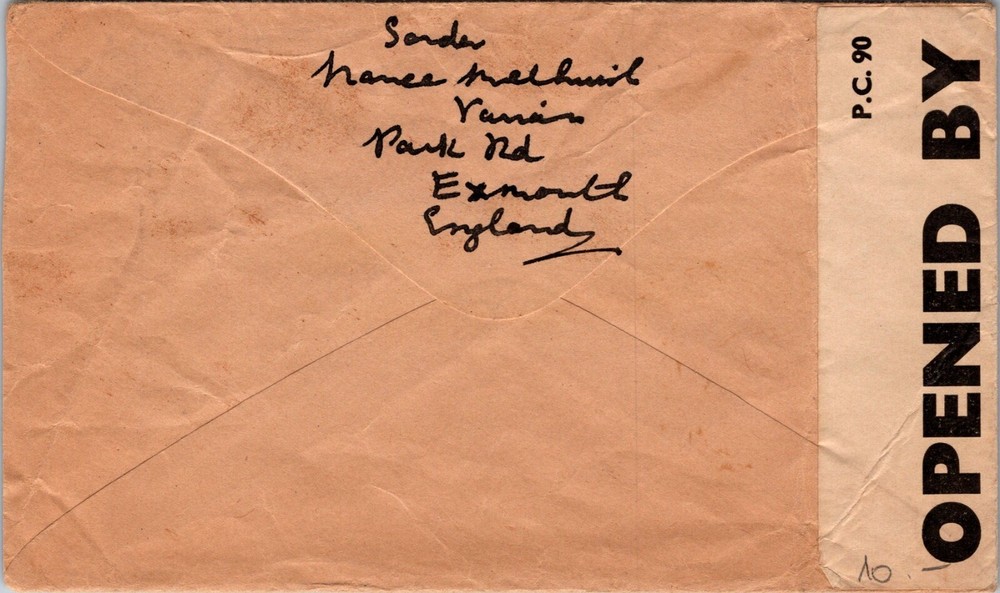 Sender
Nance Melhuish
Park Rd
Exmouth
England
P.C. 90
OPENED BY
10